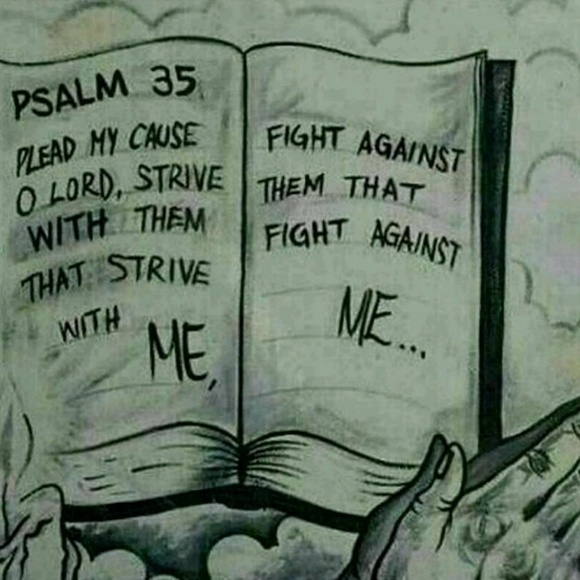 PSALM 35
PLEAD MY CAUSE
O LORD, STRIVE
WITH THEM
THAT STRIVE
WITH ME,
FIGHT AGAINST
THEM THAT
FIGHT AGAINST
ME...